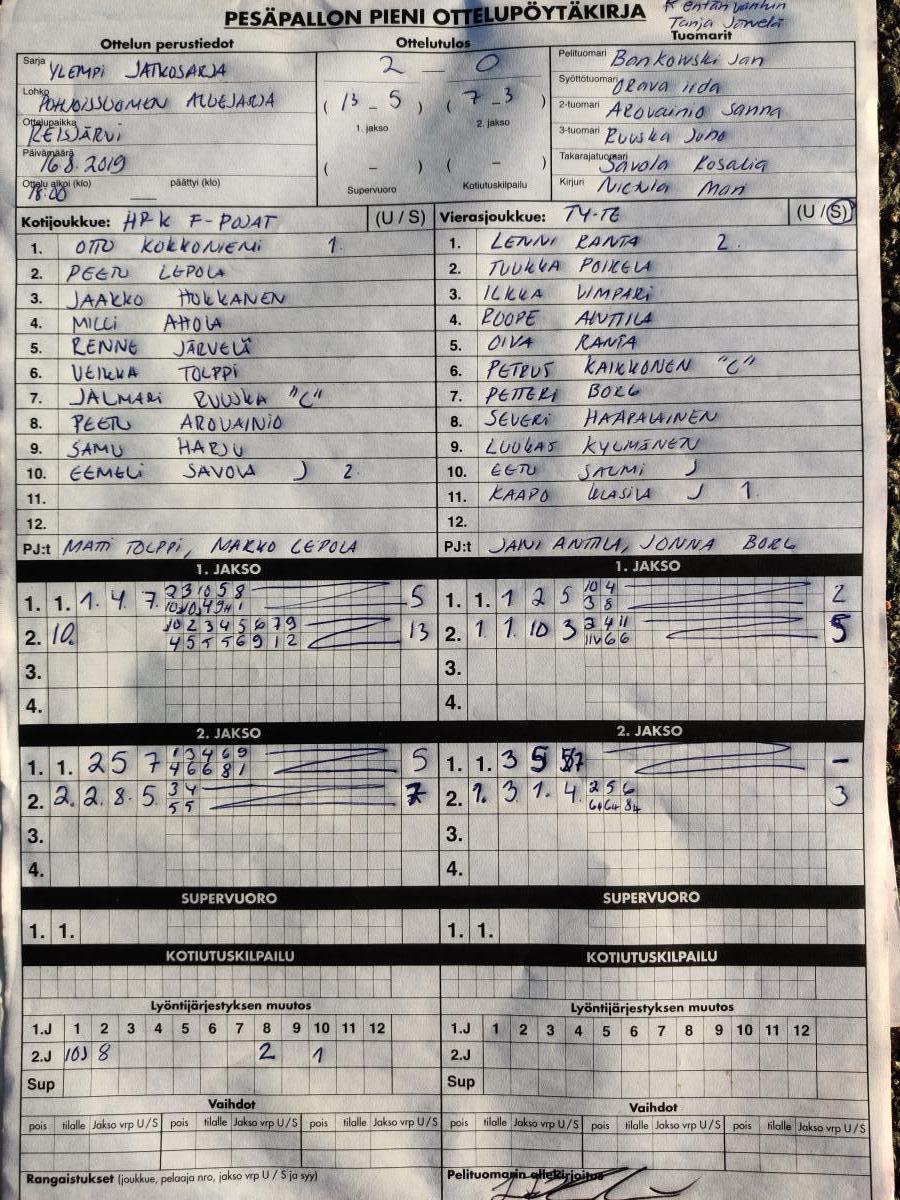 PESÄPALLON PIENI OTTELUPÖYTÄKIRJA
Tanja Järvelä
Ottelun perustiedot Ottelutulos Tuomarit
Sarja YLEMPI JATKOSARJA
Lohko POHJOISSUOMEN ALUEJARJA
Ottelupaikka REISJÄRVI
Päivämäärä 16.8.2019
Ottelu alkoi (klo) 18:00 päättyi (klo)
2 — 0
(13 - 5) (7 - 3)
1. jakso 2. jakso
( - ) ( - )
Supervuoro Kotiutuskilpailu
Pelituomari Bankowski Jan
Syöttötuomari Orava Iida
2-tuomari Arovainio Sanna
3-tuomari Ruuska Juho
Takarajatuomari Savola Rosalia
Kirjuri Mari
Kotijoukkue: HP-K F-POJAT (U / S)
1. OTTO KOKKONIEMI 1.
2. PEETU LEPOLA
3. JAAKKO HUKKANEN
4. MILLI AHOLA
5. RENNE JÄRVELÄ
6. VEIKKA TOLPPI
7. JALMARI RUUSKA "C"
8. PEETU AROVAINIO
9. SAMU HARJU
10. EEMELI SAVOLA J 2.
11.
12.
PJ:t MATTI TOLPPI, MARKO LEPOLA
Vierasjoukkue: TY-TE (U / S)
1. LENNI RANTA 2.
2. TUUKKA POIKELA
3. ILKKA VIMPARI
4. ROOPE ANTTILA
5. OIVA RANTA
6. PETRUS KAIKKONEN "C"
7. PETTERI BORG
8. SEVERI HAAPALAINEN
9. LUUKAS KYLMÄNEN
10. EETU SALMI J
11. KAAPO ULASILA J 1.
12.
PJ:t JANI ANTTILA, JONNA BORG
1. JAKSO
1. 1. 1. 4 7. 2 3 10 5 8 5
2. 10. 10 2 3 4 5 6 7 9 13
4 5 5 5 6 9 1 2
3.
4.
1. JAKSO
1. 1. 1 2 5 10 4 2
3 8
2. 1. 1. 10 3 2 4 11 5
3.
4.
2. JAKSO
1. 1. 2 5 7 1 3 4 6 9 5
4 6 6 8 1
2. 2. 2. 8. 5. 3 4 7
5 5
3.
4.
2. JAKSO
1. 1. 3 5 –
2. 1. 3 1. 4. 2 5 6 3
3.
4.
SUPERVUORO SUPERVUORO
1. 1. 1. 1.
KOTIUTUSKILPAILU KOTIUTUSKILPAILU
Lyöntijärjestyksen muutos Lyöntijärjestyksen muutos
1.J 1 2 3 4 5 6 7 8 9 10 11 12 1.J 1 2 3 4 5 6 7 8 9 10 11 12
2.J 10J 8 2 1 2.J
Sup Sup
Vaihdot Vaihdot
pois tilalle Jakso vrp U / S pois tilalle Jakso vrp U / S pois tilalle Jakso vrp U / S pois tilalle Jakso vrp U / S pois tilalle Jakso vrp U / S pois tilalle Jakso vrp U / S
Rangaistukset (joukkue, pelaaja nro, jakso vrp U / S ja syy) Pelituomarin allekirjoitus